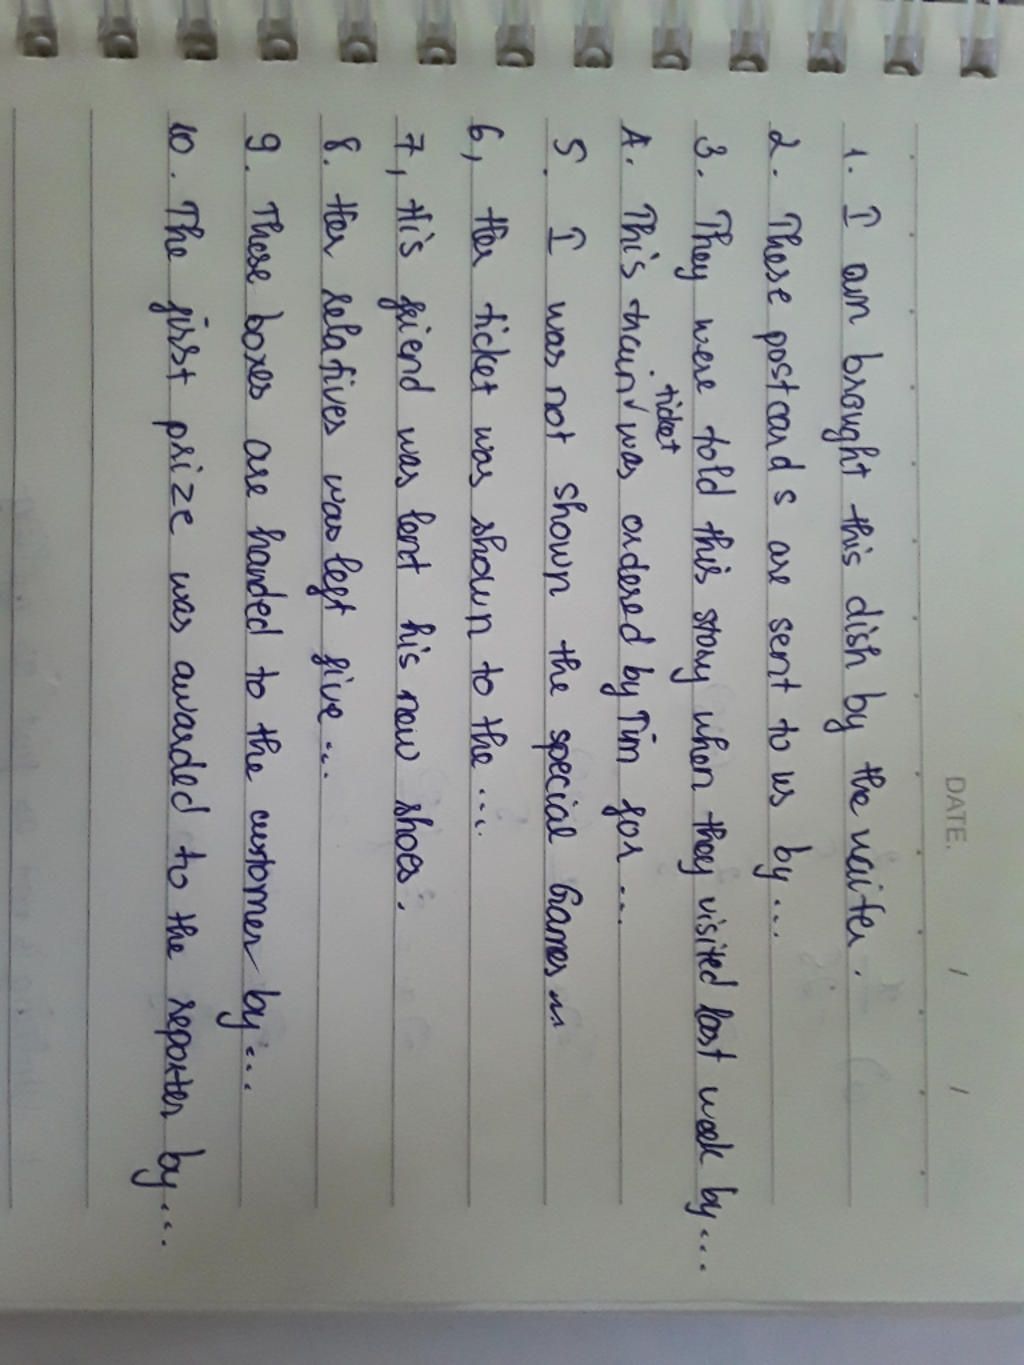 DATE. / /
1. I am brought this dish by the waiter.
2. These postcards are sent to us by...
3. They were told this story when they visited last week by...
4. This train ticket was ordered by Tim for...
5. I was not shown the special Games ...
6, Her ticket was shown to the...
7, His friend was lent his new shoes.
8. Her relatives was left five...
9. These boxes are handed to the customer by...
10. The first prize was awarded to the reporter by...